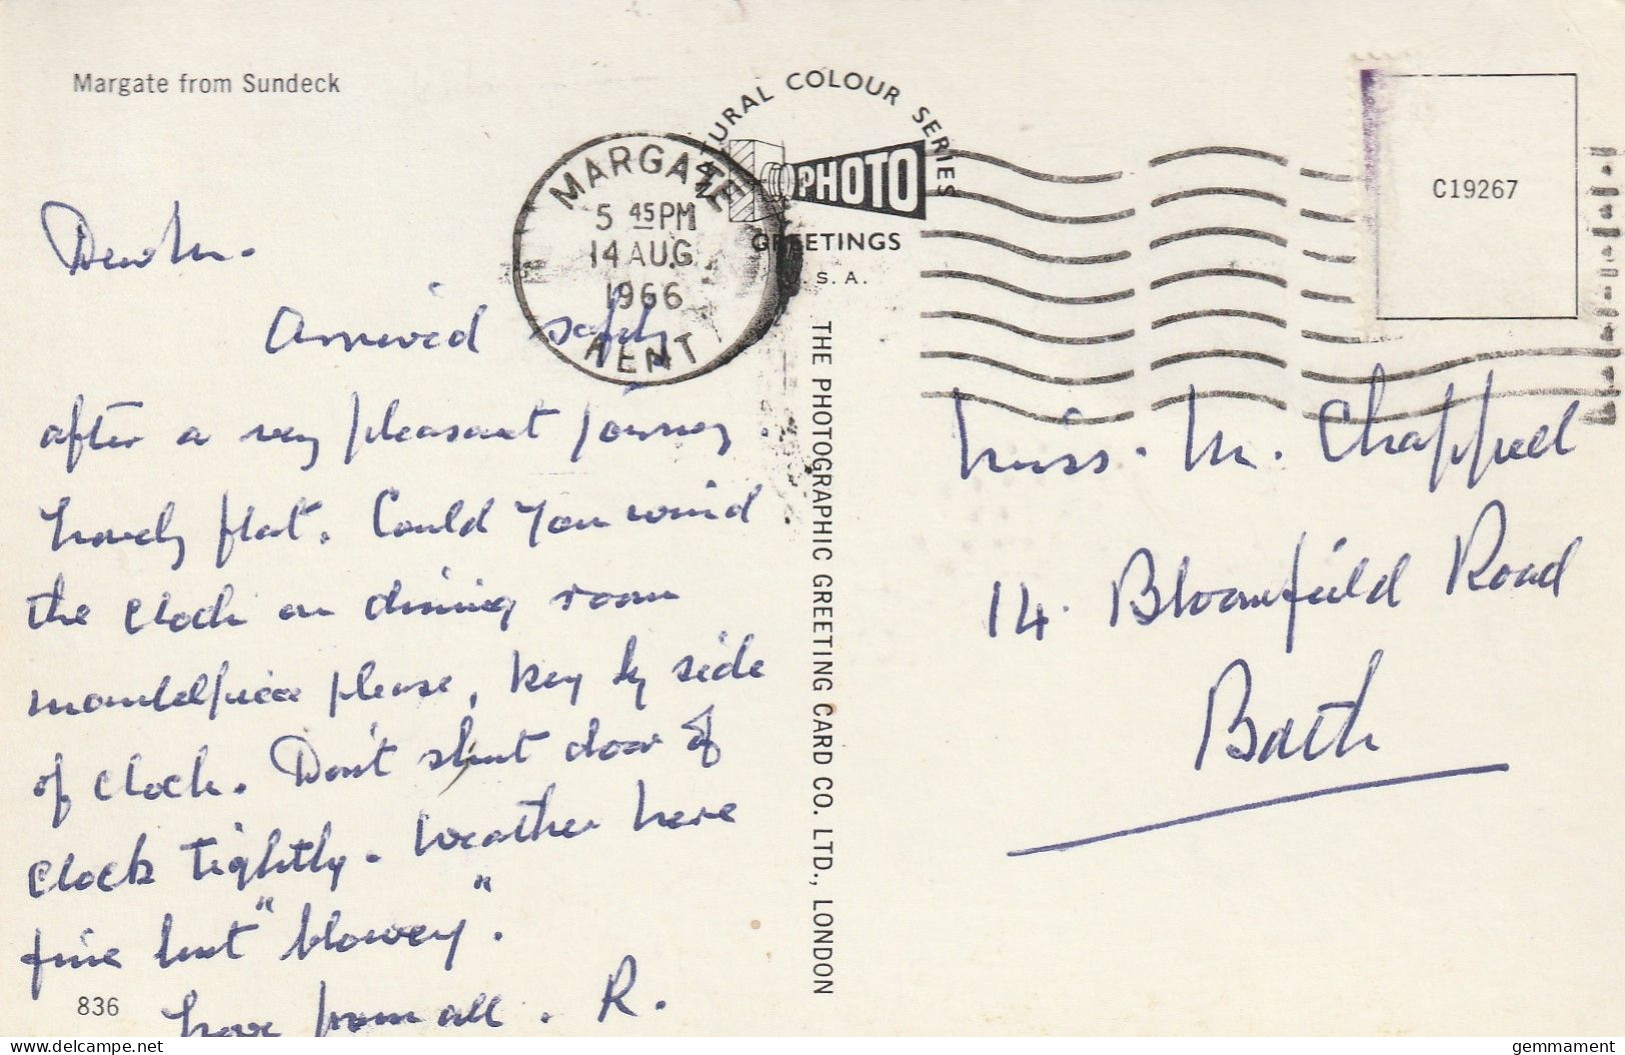 Margate from Sundeck
NATURAL COLOUR SERIES
PHOTO
GREETINGS
S. A.
MARGATE
5 45 PM
14 AUG
1966
KENT
C19267
Dear M.
Arrived safely
after a very pleasant journey
lovely flat. Could you wind
the clock on dining room
mantelpiece please, key by side
of clock. Don't shut door of
clock tightly. Weather here
fine but "blowey".
Love from all. R.
836
THE PHOTOGRAPHIC GREETING CARD CO. LTD., LONDON
Miss. M. Chappell
14. Bloomfield Road
Bath
www.delcampe.net
gemmament